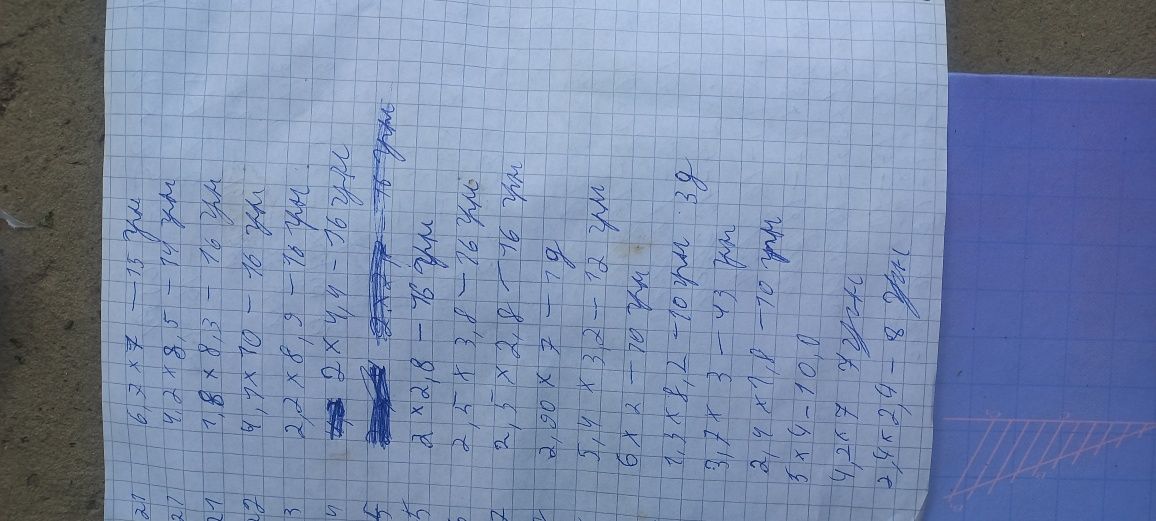 21 6,2 x 7 — 15 грн
21 4,2 x 8,5 — 14 грн
21 1,8 x 8,3 — 16 грн
22 4,7 x 10 — 16 грн
3 2,2 x 8,9 — 16 грн
4 2 x 4,4 - 16 грн
5
5 2 x 2,8 — 16 грн
2,5 x 3,8 — 16 грн
7 2,5 x 2,8 — 16 грн
2,90 x 7 — 19
5,4 x 3,2 — 12 грн
6 x 2 — 10 грн
1,3 x 8,2 — 10 грн 3д
3,7 x 3 — 43 грн
2,4 x 1,8 — 10 грн
5 x 4 - 10,0
4,2 x 7 7
2,4 x 2,4 - 8